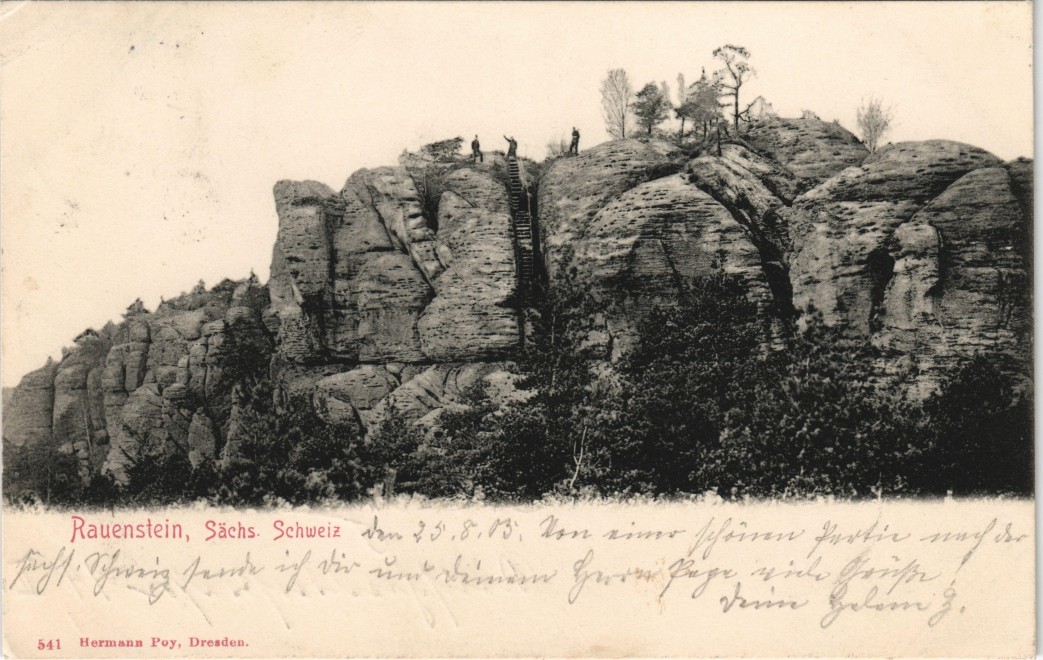 Rauenstein, Sächs. Schweiz den 25.8.03. Von einer schönen Partie nach der
sächs. Schweiz sende ich dir und deinem Herrn Papa viele Grüße
deine
541 Hermann Poy, Dresden.